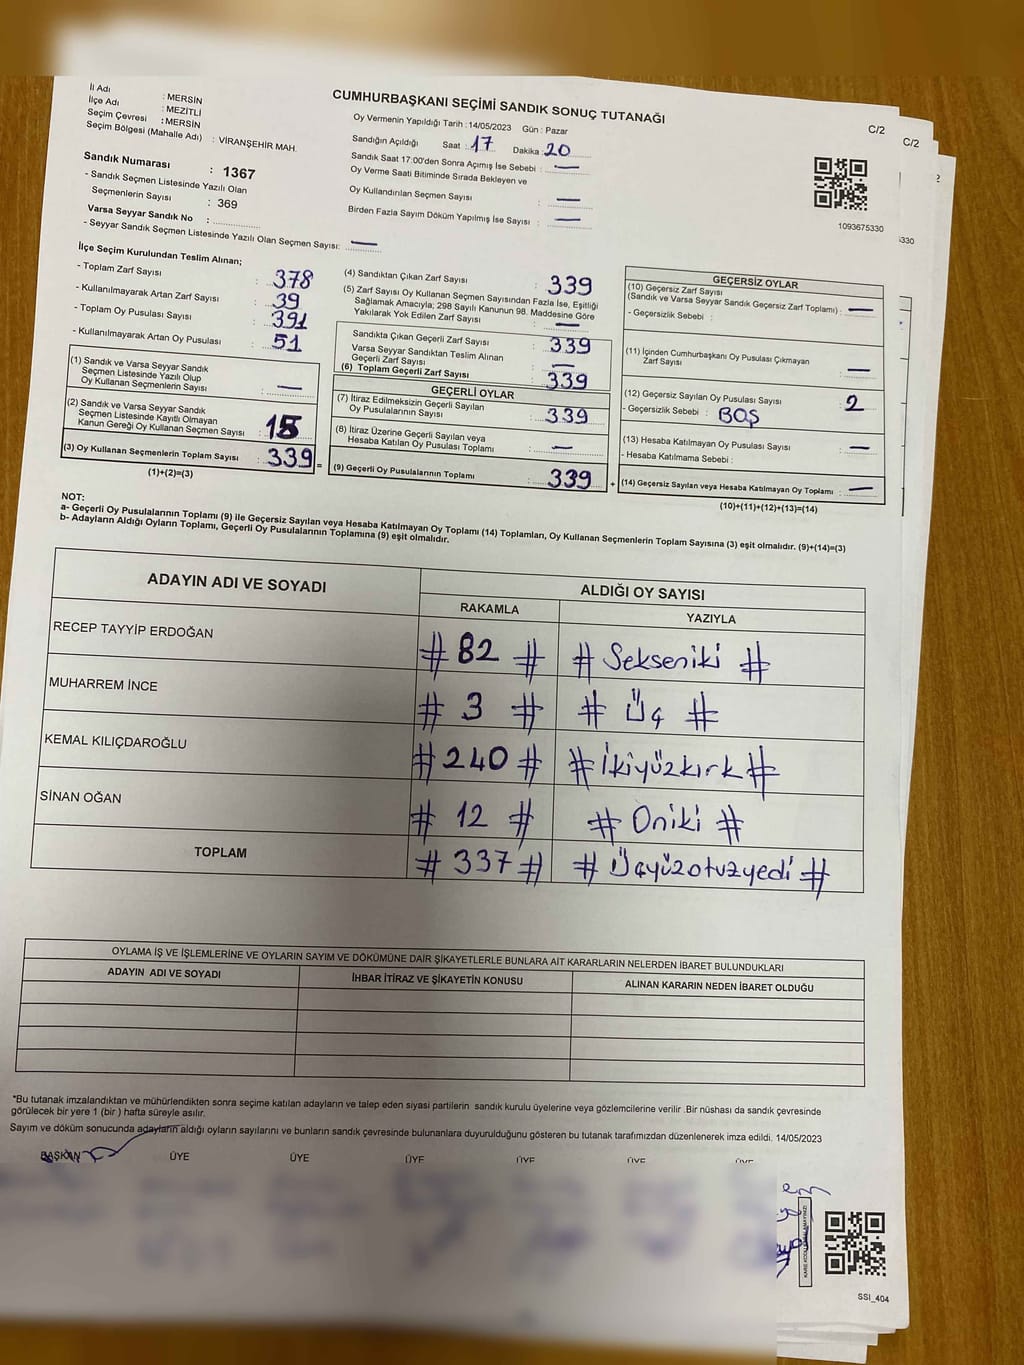 CUMHURBAŞKANI SEÇİMİ SANDIK SONUÇ TUTANAĞI
C/2
C/2
2
İl Adı : MERSİN
İlçe Adı : MEZİTLİ
Seçim Çevresi : MERSİN
Seçim Bölgesi (Mahalle Adı) : VİRANŞEHİR MAH.
Oy Vermenin Yapıldığı Tarih : 14/05/2023 Gün : Pazar
Sandığın Açıldığı Saat : 17 Dakika : 20
Sandık Saat 17:00'den Sonra Açımış İse Sebebi : —
Oy Verme Saati Bitiminde Sırada Bekleyen ve
Oy Kullandırılan Seçmen Sayısı : —
Birden Fazla Sayım Döküm Yapılmış İse Sayısı : —
1093675330
330
Sandık Numarası : 1367
- Sandık Seçmen Listesinde Yazılı Olan
Seçmenlerin Sayısı : 369
Varsa Seyyar Sandık No :
- Seyyar Sandık Seçmen Listesinde Yazılı Olan Seçmen Sayısı: —
İlçe Seçim Kurulundan Teslim Alınan;
- Toplam Zarf Sayısı : 378
- Kullanılmayarak Artan Zarf Sayısı : 39
- Toplam Oy Pusulası Sayısı : 391
- Kullanılmayarak Artan Oy Pusulası : 51
(1) Sandık ve Varsa Seyyar Sandık
Seçmen Listesinde Yazılı Olup
Oy Kullanan Seçmenlerin Sayısı : —
(2) Sandık ve Varsa Seyyar Sandık
Seçmen Listesinde Kayıtlı Olmayan
Kanun Gereği Oy Kullanan Seçmen Sayısı :
(3) Oy Kullanan Seçmenlerin Toplam Sayısı : 339 =
(1)+(2)=(3)
(4) Sandıktan Çıkan Zarf Sayısı : 339
(5) Zarf Sayısı Oy Kullanan Seçmen Sayısından Fazla İse, Eşitliği
Sağlamak Amacıyla; 298 Sayılı Kanunun 98. Maddesine Göre
Yakılarak Yok Edilen Zarf Sayısı : —
Sandıkta Çıkan Geçerli Zarf Sayısı : 339
Varsa Seyyar Sandıktan Teslim Alınan
Geçerli Zarf Sayısı : —
(6) Toplam Geçerli Zarf Sayısı : 339
GEÇERLİ OYLAR
(7) İtiraz Edilmeksizin Geçerli Sayılan
Oy Pusulalarının Sayısı : 339
(8) İtiraz Üzerine Geçerli Sayılan veya
Hesaba Katılan Oy Pusulası Toplamı : —
(9) Geçerli Oy Pusulalarının Toplamı : 339 +
GEÇERSİZ OYLAR
(10) Geçersiz Zarf Sayısı
(Sandık ve Varsa Seyyar Sandık Geçersiz Zarf Toplamı) : —
- Geçersizlik Sebebi :
(11) İçinden Cumhurbaşkanı Oy Pusulası Çıkmayan
Zarf Sayısı : —
(12) Geçersiz Sayılan Oy Pusulası Sayısı : 2
- Geçersizlik Sebebi : BOŞ
(13) Hesaba Katılmayan Oy Pusulası Sayısı : —
- Hesaba Katılmama Sebebi :
(14) Geçersiz Sayılan veya Hesaba Katılmayan Oy Toplamı : —
(10)+(11)+(12)+(13)=(14)
NOT:
a- Geçerli Oy Pusulalarının Toplamı (9) ile Geçersiz Sayılan veya Hesaba Katılmayan Oy Toplamı (14) Toplamları, Oy Kullanan Seçmenlerin Toplam Sayısına (3) eşit olmalıdır. (9)+(14)=(3)
b- Adayların Aldığı Oyların Toplamı, Geçerli Oy Pusulalarının Toplamına (9) eşit olmalıdır.
ADAYIN ADI VE SOYADI ALDIĞI OY SAYISI
RAKAMLA YAZIYLA
RECEP TAYYİP ERDOĞAN # 82 # # Sekseniki #
MUHARREM İNCE # 3 # # Üç #
KEMAL KILIÇDAROĞLU # 240 # # İkiyüzkırk #
SİNAN OĞAN # 12 # # Oniki #
TOPLAM # 337 # # Üçyüzotuzyedi #
OYLAMA İŞ VE İŞLEMLERİNE VE OYLARIN SAYIM VE DÖKÜMÜNE DAİR ŞİKAYETLERLE BUNLARA AİT KARARLARIN NELERDEN İBARET BULUNDUKLARI
ADAYIN ADI VE SOYADI İHBAR İTİRAZ VE ŞİKAYETİN KONUSU ALINAN KARARIN NEDEN İBARET OLDUĞU
*Bu tutanak imzalandıktan ve mühürlendikten sonra seçime katılan adayların ve talep eden siyasi partilerin sandık kurulu üyelerine veya gözlemcilerine verilir .Bir nüshası da sandık çevresinde
görülecek bir yere 1 (bir ) hafta süreyle asılır.
Sayım ve döküm sonucunda adayların aldığı oyların sayılarını ve bunların sandık çevresinde bulunanlara duyurulduğunu gösteren bu tutanak tarafımızdan düzenlenerek imza edildi. 14/05/2023
BAŞKAN ÜYE ÜYE ÜYE ÜYE ÜYE ÜYE
SSI_404